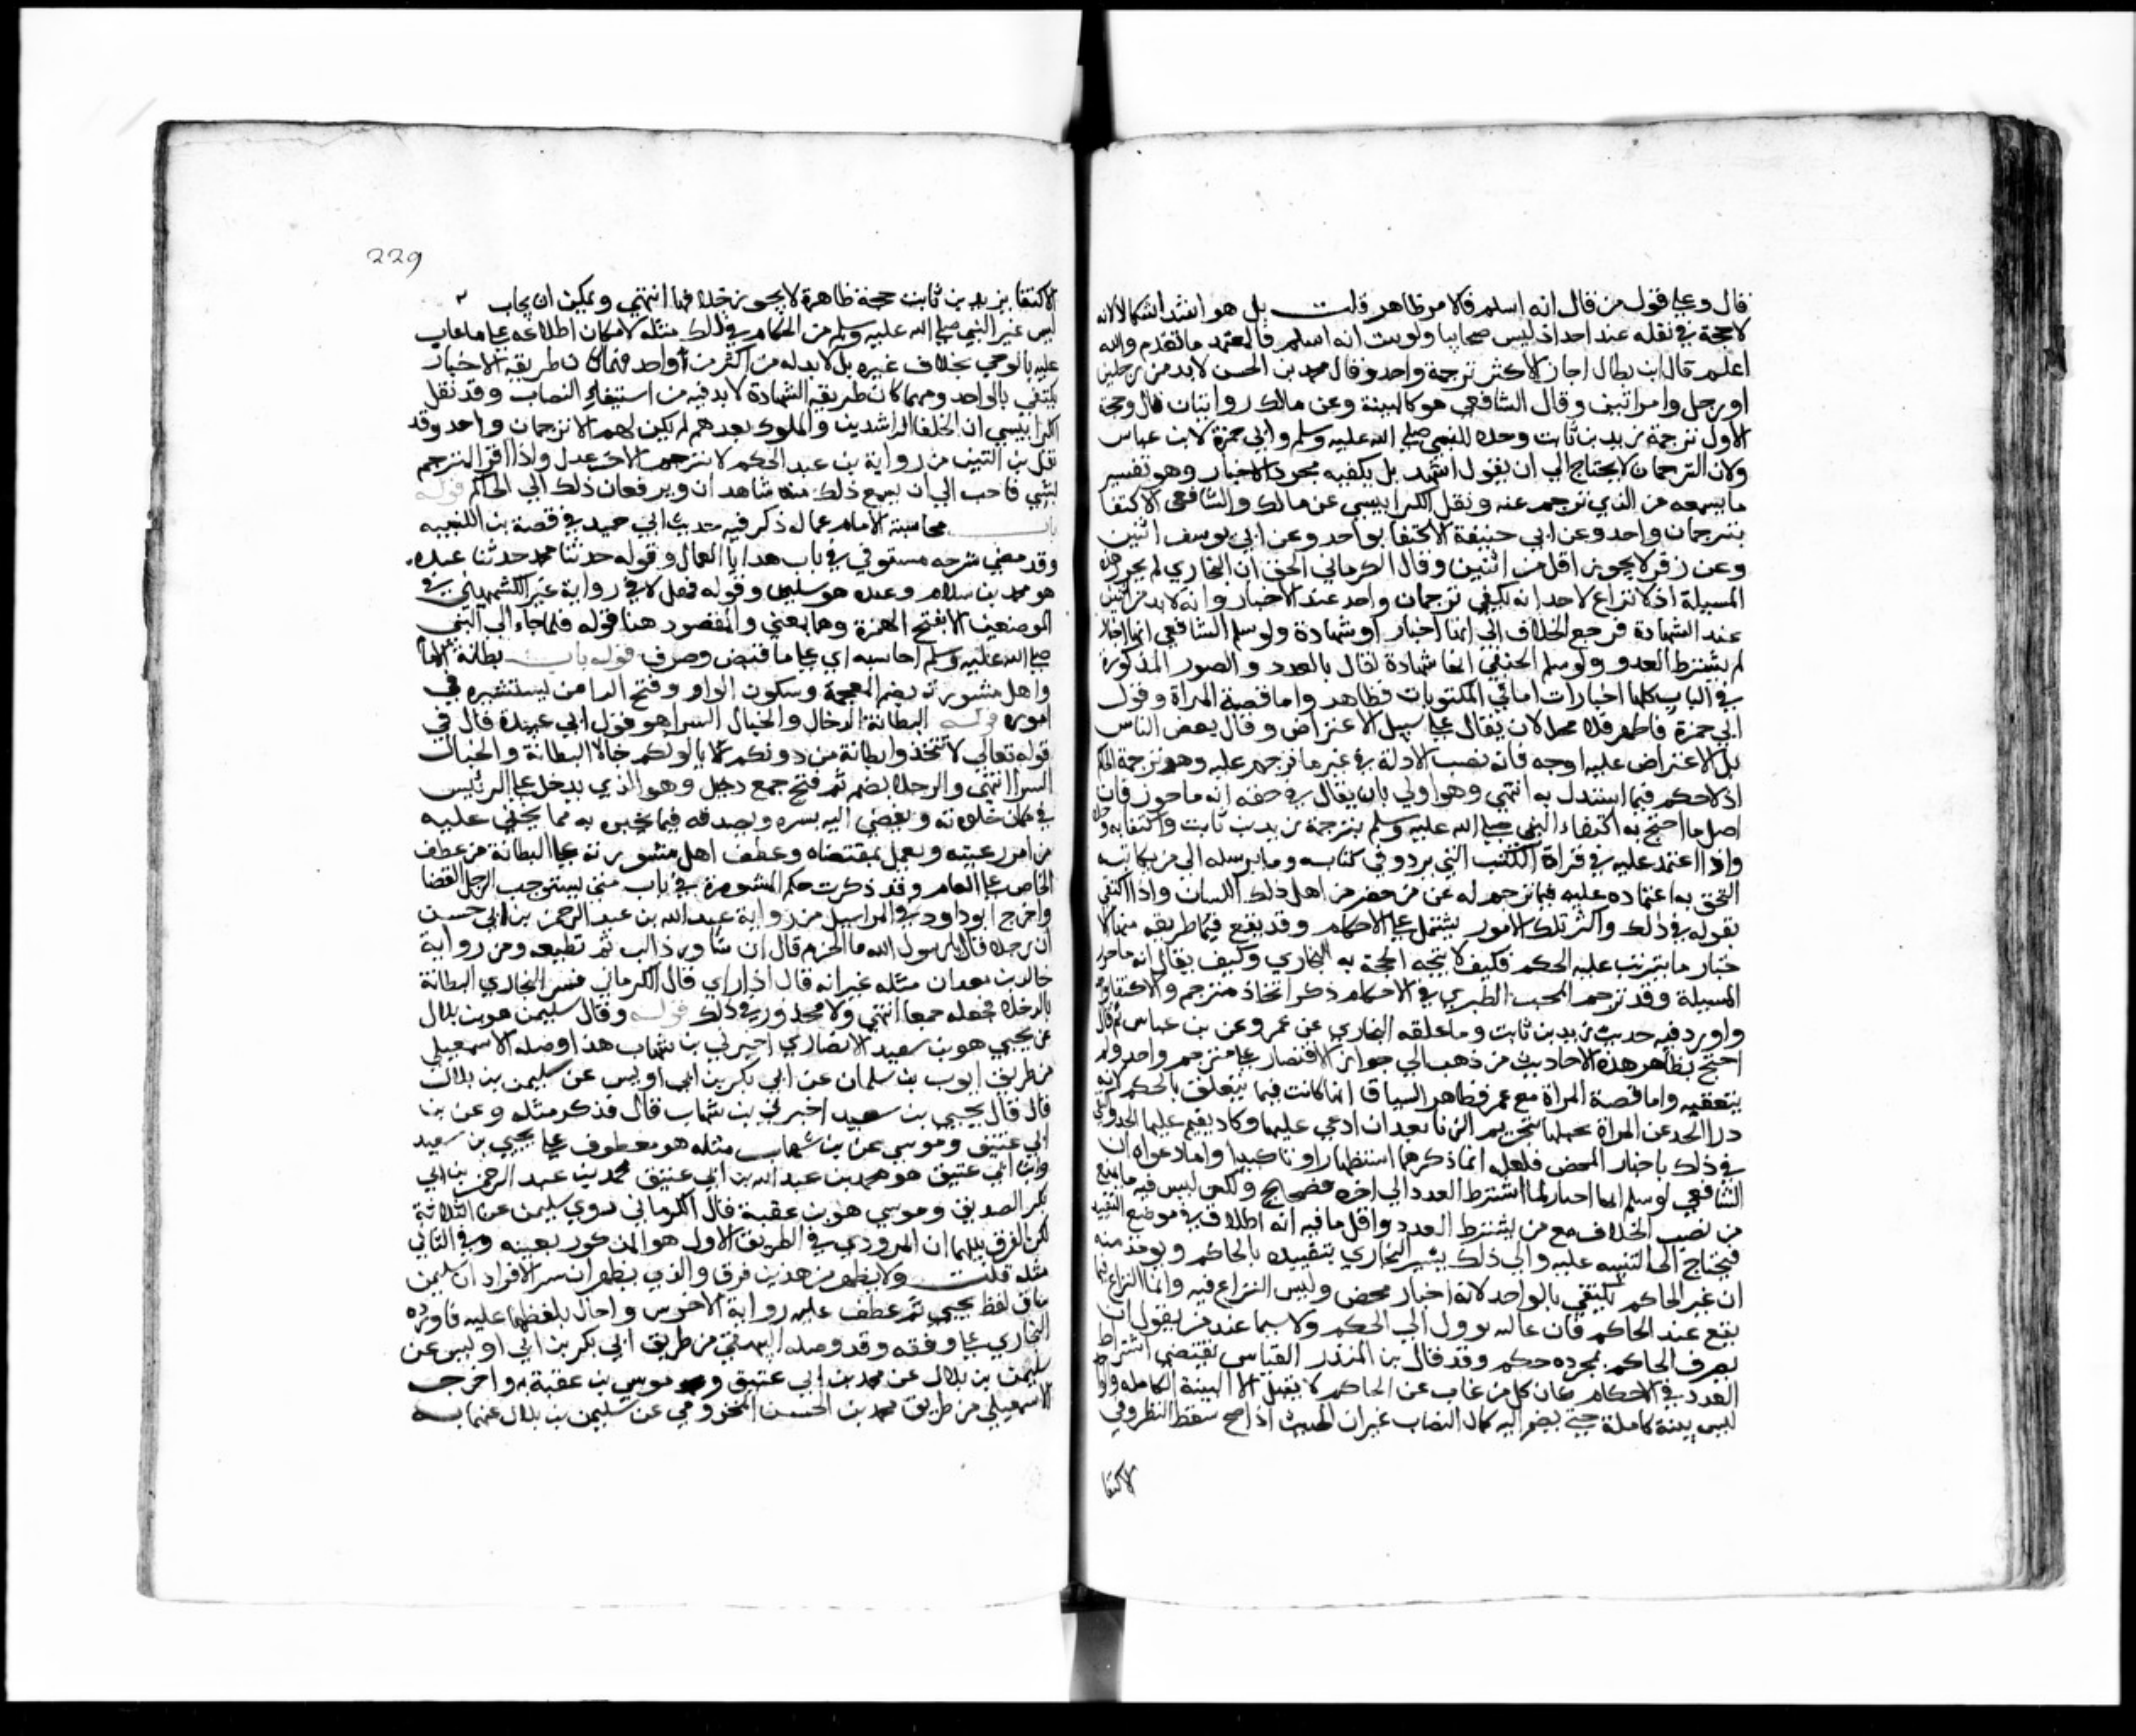 قال وعلي قول من قال انه اسلم فالامر ظاهر قلت بل هو اشد اشكالا لانه
لا حجة في نقله عند احد اذ ليس صحابيا ولو ثبت انه اسلم فالمعتمد ما تقدم والله
اعلم قال ابن بطال اجاز الاكثر ترجمة واحد وقال محمد بن الحسن لا بد من رجلين
او رجل وامراتين وقال الشافعي هو كالبينة وعن مالك روايتان قال وحجة
الاول ترجمة زيد بن ثابت وحده للنبي صلي الله عليه وسلم وابي جمرة لابن عباس
ولان الترجمان لا يحتاج الي ان يقول اشهد بل يكفيه مجرد الاخبار وهو تفسير
ما يسمعه من الذي يترجم عنه ونقل الكرابيسي عن مالك والشافعي الاكتفا
بترجمان واحد وعن ابي حنيفة الاكتفا بواحد وعن ابي يوسف اثنين
وعن زفر لا يجوز اقل من اثنين وقال الكرماني الحق ان البخاري لم يحرر هذه
المسيلة اذ لا نزاع لاحد انه يكفي ترجمان واحد عند الاخبار وانه لا بد من اثنين
عند الشهادة فرجع الخلاف الي انها اخبار او شهادة ولو سلم الشافعي انها اخبار
لم يشترط العدد ولو سلم الحنفي انها شهادة لقال بالعدد والصور المذكورة
في الباب كلها اخبارات اما في المكتوبات فظاهر واما قصة المراة وقول
ابي جمرة فاظهر فلا محل لان يقال علي سبيل الاعتراض وقال بعض الناس
بل الاعتراض عليه اوجه فانه نصب الادلة في غير ما ترجم عليه وهو ترجمة الحاكم
اذ لا حكم فيما استدل به انتهي وهو اولي بان يقال في حقه انه ما حرر فان
اصل ما احتج به اكتفاء النبي صلي الله عليه وسلم بترجمة زيد بن ثابت واكتفا به وحده
واذا اعتمد عليه في قراة الكتب التي ترد وفي كتابه وما يرسله الي من يكاتبه
التحق به اعتماده عليه فيما ترجم له عن من حضر من اهل ذلك اللسان واذا اكتفي
بقوله في ذلك واكثر تلك الامور يشتمل علي الاحكام وقد يقع فيما طريقه منها الا
خبار ما يترتب عليه الحكم فكيف لا يتجه الحجة به البخاري وكيف يقال انه ما حرر
المسيلة وقد ترجم المحب الطبري في الاحكام ذكر اتخاذ مترجم والاكتفا بواحد
واورد فيه حديث زيد بن ثابت وما علقه البخاري عن عمر وعن بن عباس ثم قال
احتج بظاهر هذه الاحاديث من ذهب الي جواز الاقتصار علي مترجم واحد ولم
يتعقبه واما قصة المراة مع عمر فظاهر السياق انها كانت فيما يتعلق بالحكم لانه
درا الحد عن المراة بجهلها بتحريم الزنا بعد ان ادعي عليها وكاد يقيم عليها الحد واكتفي
في ذلك باخبار المحض فلعله انما ذكرهما استظهارا وتاكيدا واما دعواه ان
الشافعي لو سلم انها اخبار لما اشترط العدد الي اخره فصحيح ولكن ليس فيه ما يمنع
من نصب الخلاف مع من يشترط العدد واقل ما فيه انه اطلاق في موضع التقييد
فيحتاج الي التنبيه عليه والي ذلك يشير البخاري بتقييده بالحاكم ويوخذ منه
ان غير الحاكم يكتفي بالواحد لانه اخبار محض وليس النزاع فيه وانما النزاع فيما
يقع عند الحاكم فان غالبه يوول الي الحكم ولا سيما عند من يقول ان
تصرف الحاكم بمجرده حكم وقد قال بن المنذر القياس يقتضي اشتراط
العدد في الاحكام لان كل من غاب عن الحاكم لا يقبل الا البينة الكاملة والواحد
ليس بينة كاملة حتي يضم اليه كمال النصاب غير ان الحديث اذا صح سقط النظر وفي
لاكتفا
229
الاكتفا بزيد بن ثابت حجة ظاهرة لا يجوز خلافها انتهي ويمكن ان يجاب
ليس غير النبي صلي الله عليه وسلم من الحكام في ذلك مثله لامكان اطلاعه علي ما غاب
عليه بالوحي بخلاف غيره بل لا بد له من اكثر من واحد فمهما كان طريقه الاخبار
يكتفي بالواحد ومهما كان طريقه الشهادة لا بد فيه من استيفاء النصاب وقد نقل
الكرابيسي ان الخلفا الراشدين والملوك بعدهم لم يكن لهم الا ترجمان واحد وقد
نقل بن التين من رواية بن عبد الحكم لا يترجم الا حر عدل واذا اقر المترجم
بشي فاحب الي ان يسمع ذلك منه شاهدان ويرفعان ذلك الي الحاكم قوله
باب محاسبة الامام عماله ذكر فيه حديث ابي حميد في قصة بن اللتبية
وقد مضي شرحه مستوفي في باب هدايا العمال وقوله حدثنا محمد حدثنا عبده
هو محمد بن سلام وعبده هو سليمن وقوله فهل لا في رواية غير الكشميهني في
الموضعين الا بفتح الهمزة وهما بمعني والمقصود هنا قوله فلما جاء الي النبي
صلي الله عليه وسلم حاسبه اي علي ما قبض وصرف قوله باب بطانة الامام
واهل مشورته بضم المعجمة وسكون الواو وفتح الرا من يستشيره في
اموره قوله البطانة الدخلا والخبال الشر هو قول ابي عبيدة قال في
قوله تعالي لا تتخذوا بطانة من دونكم لا يالونكم خبالا البطانة والخبال
الشر انتهي والدخلا بضم ثم فتح جمع دخيل وهو الذي يدخل علي الرئيس
في مكان خلوته ويفضي اليه بسره ويصدقه فيما يخبره به مما يخفي عليه
من امر رعيته ويعمل بمقتضاه وعطف اهل مشورته علي البطانة من عطف
الخاص علي العام وقد ذكرت حكم المشورة في باب متي يستوجب الرجل القضا
واخرج ابو داود في المراسيل من رواية عبد الله بن عبد الرحمن بن ابي حسين
ان رجلا قال يا رسول الله ما الحزم قال ان تشاور ذا لب ثم تطيعه ومن رواية
خالد بن معدان مثله غير انه قال ذا راي قال الكرماني فسر البخاري البطانة
بالدخلا فجعله جمعا انتهي ولا محذور في ذلك قوله وقال سليمن هو بن بلال
عن يحيي هو بن سعيد الانصاري اخبرني بن شهاب هذا وصله الاسمعيلي
من طريق ايوب بن سليمان عن ابي بكر بن ابي اويس عن سليمن بن بلال
قال قال يحيي بن سعيد اخبرني بن شهاب قال فذكر مثله وعن بن
ابي عتيق وموسي عن بن شهاب مثله هو معطوف علي يحيي بن سعيد
وابن ابي عتيق هو محمد بن عبد الله بن ابي عتيق محمد بن عبد الرحمن بن ابي
بكر الصديق وموسي هو بن عقبة قال الكرماني روي سليمن عن الثلاثة
لكن الفرق بينهما ان المروي في الطريق الاول هو المذكور بعينه وفي الثاني
مثله قلت ولا يظهر من هذين فرق والذي يظهر ان سر الافراد ان سليمن
ساق لفظ يحيي ثم عطف عليه رواية الاخرين واحال بلفظهما عليه فاورده
البخاري علي وفقه وقد وصله البيهقي من طريق ابي بكر بن ابي اويس عن
سليمن بن بلال عن محمد بن ابي عتيق وموسي بن عقبة به واخرجه
الاسمعيلي من طريق محمد بن الحسن المخزومي عن سليمن بن بلال عنهما به